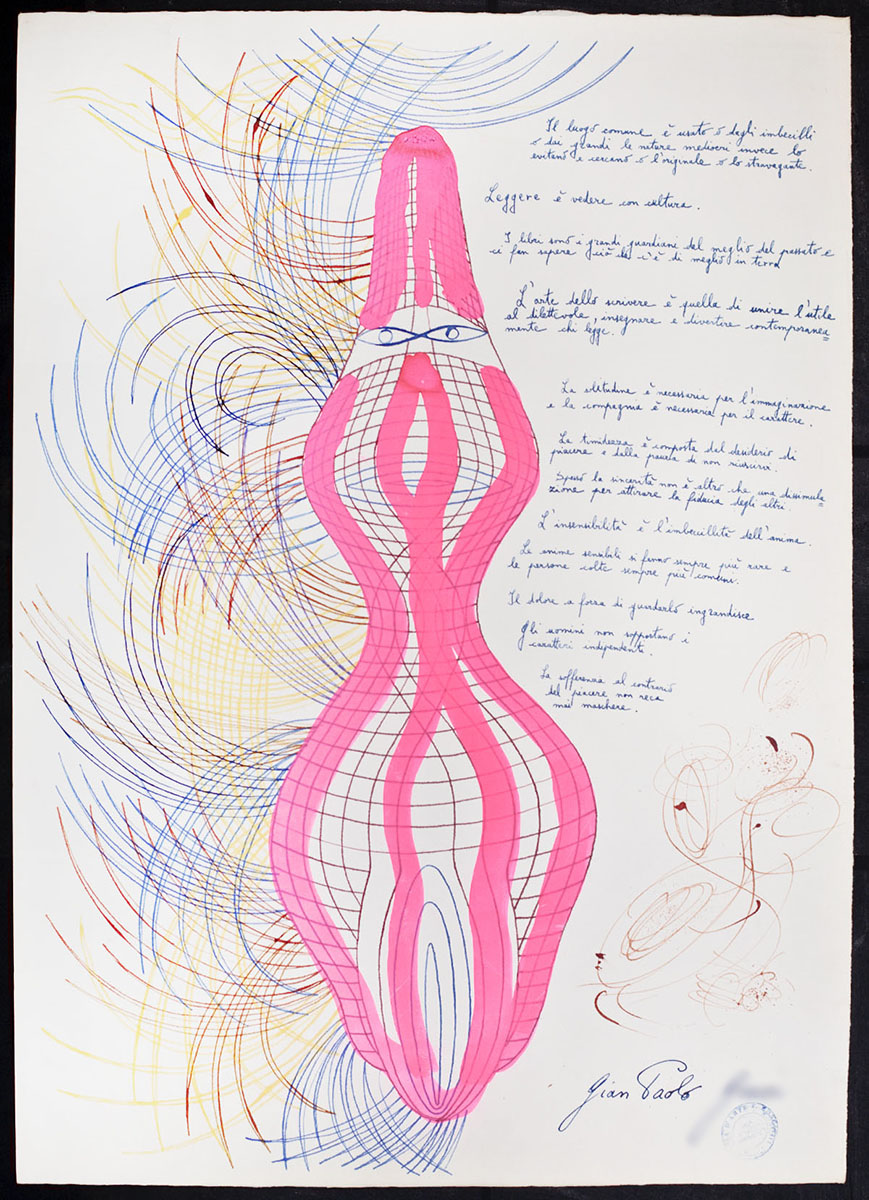 Il luogo comune è usato o dagli imbecilli
o dai grandi le nature mediocri invece lo
evitano e cercano o l'originale o lo stravagante.
Leggere è vedere con cultura.
I libri sono i grandi guardiani del meglio del passato e
ci fan sapere ciò che c'è di meglio in terra
L'arte dello scrivere è quella di unire l'utile
al dilettevole, insegnare e divertire contemporanea=
mente chi legge.
La solitudine è necessaria per l'immaginazione
e la compagnia è necessaria per il carattere.
La timidezza è composta dal desiderio di
piacere e dalla paura di non riuscirci.
Spesso la sincerità non è altro che una dissimula=
zione per attirare la fiducia degli altri.
L'insensibilità è l'imbecillità dell'anima.
Le anime sensibili si fanno sempre più rare e
le persone colte sempre più comuni.
Il dolore a forza di guardarlo ingrandisce
Gli uomini non sopportano i
caratteri indipendenti.
La sofferenza al contrario
del piacere non reca
mai maschere.
Gian Paolo